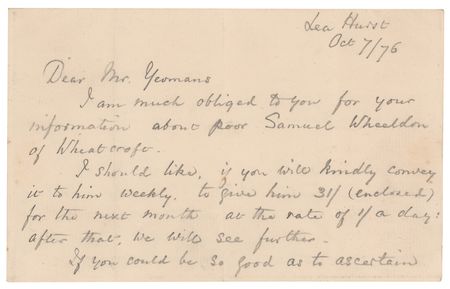 Lea Hurst
Oct 7/76
Dear Mr. Yeomans
I am much obliged to you for your
information about poor Samuel Wheeldon
of Wheatcroft.
I should like, if you will kindly convey
it to him weekly, to give him 31/ (enclosed)
for the next month at the rate of 1/ a day:
after that, we will see further.
If you could be so good as to ascertain